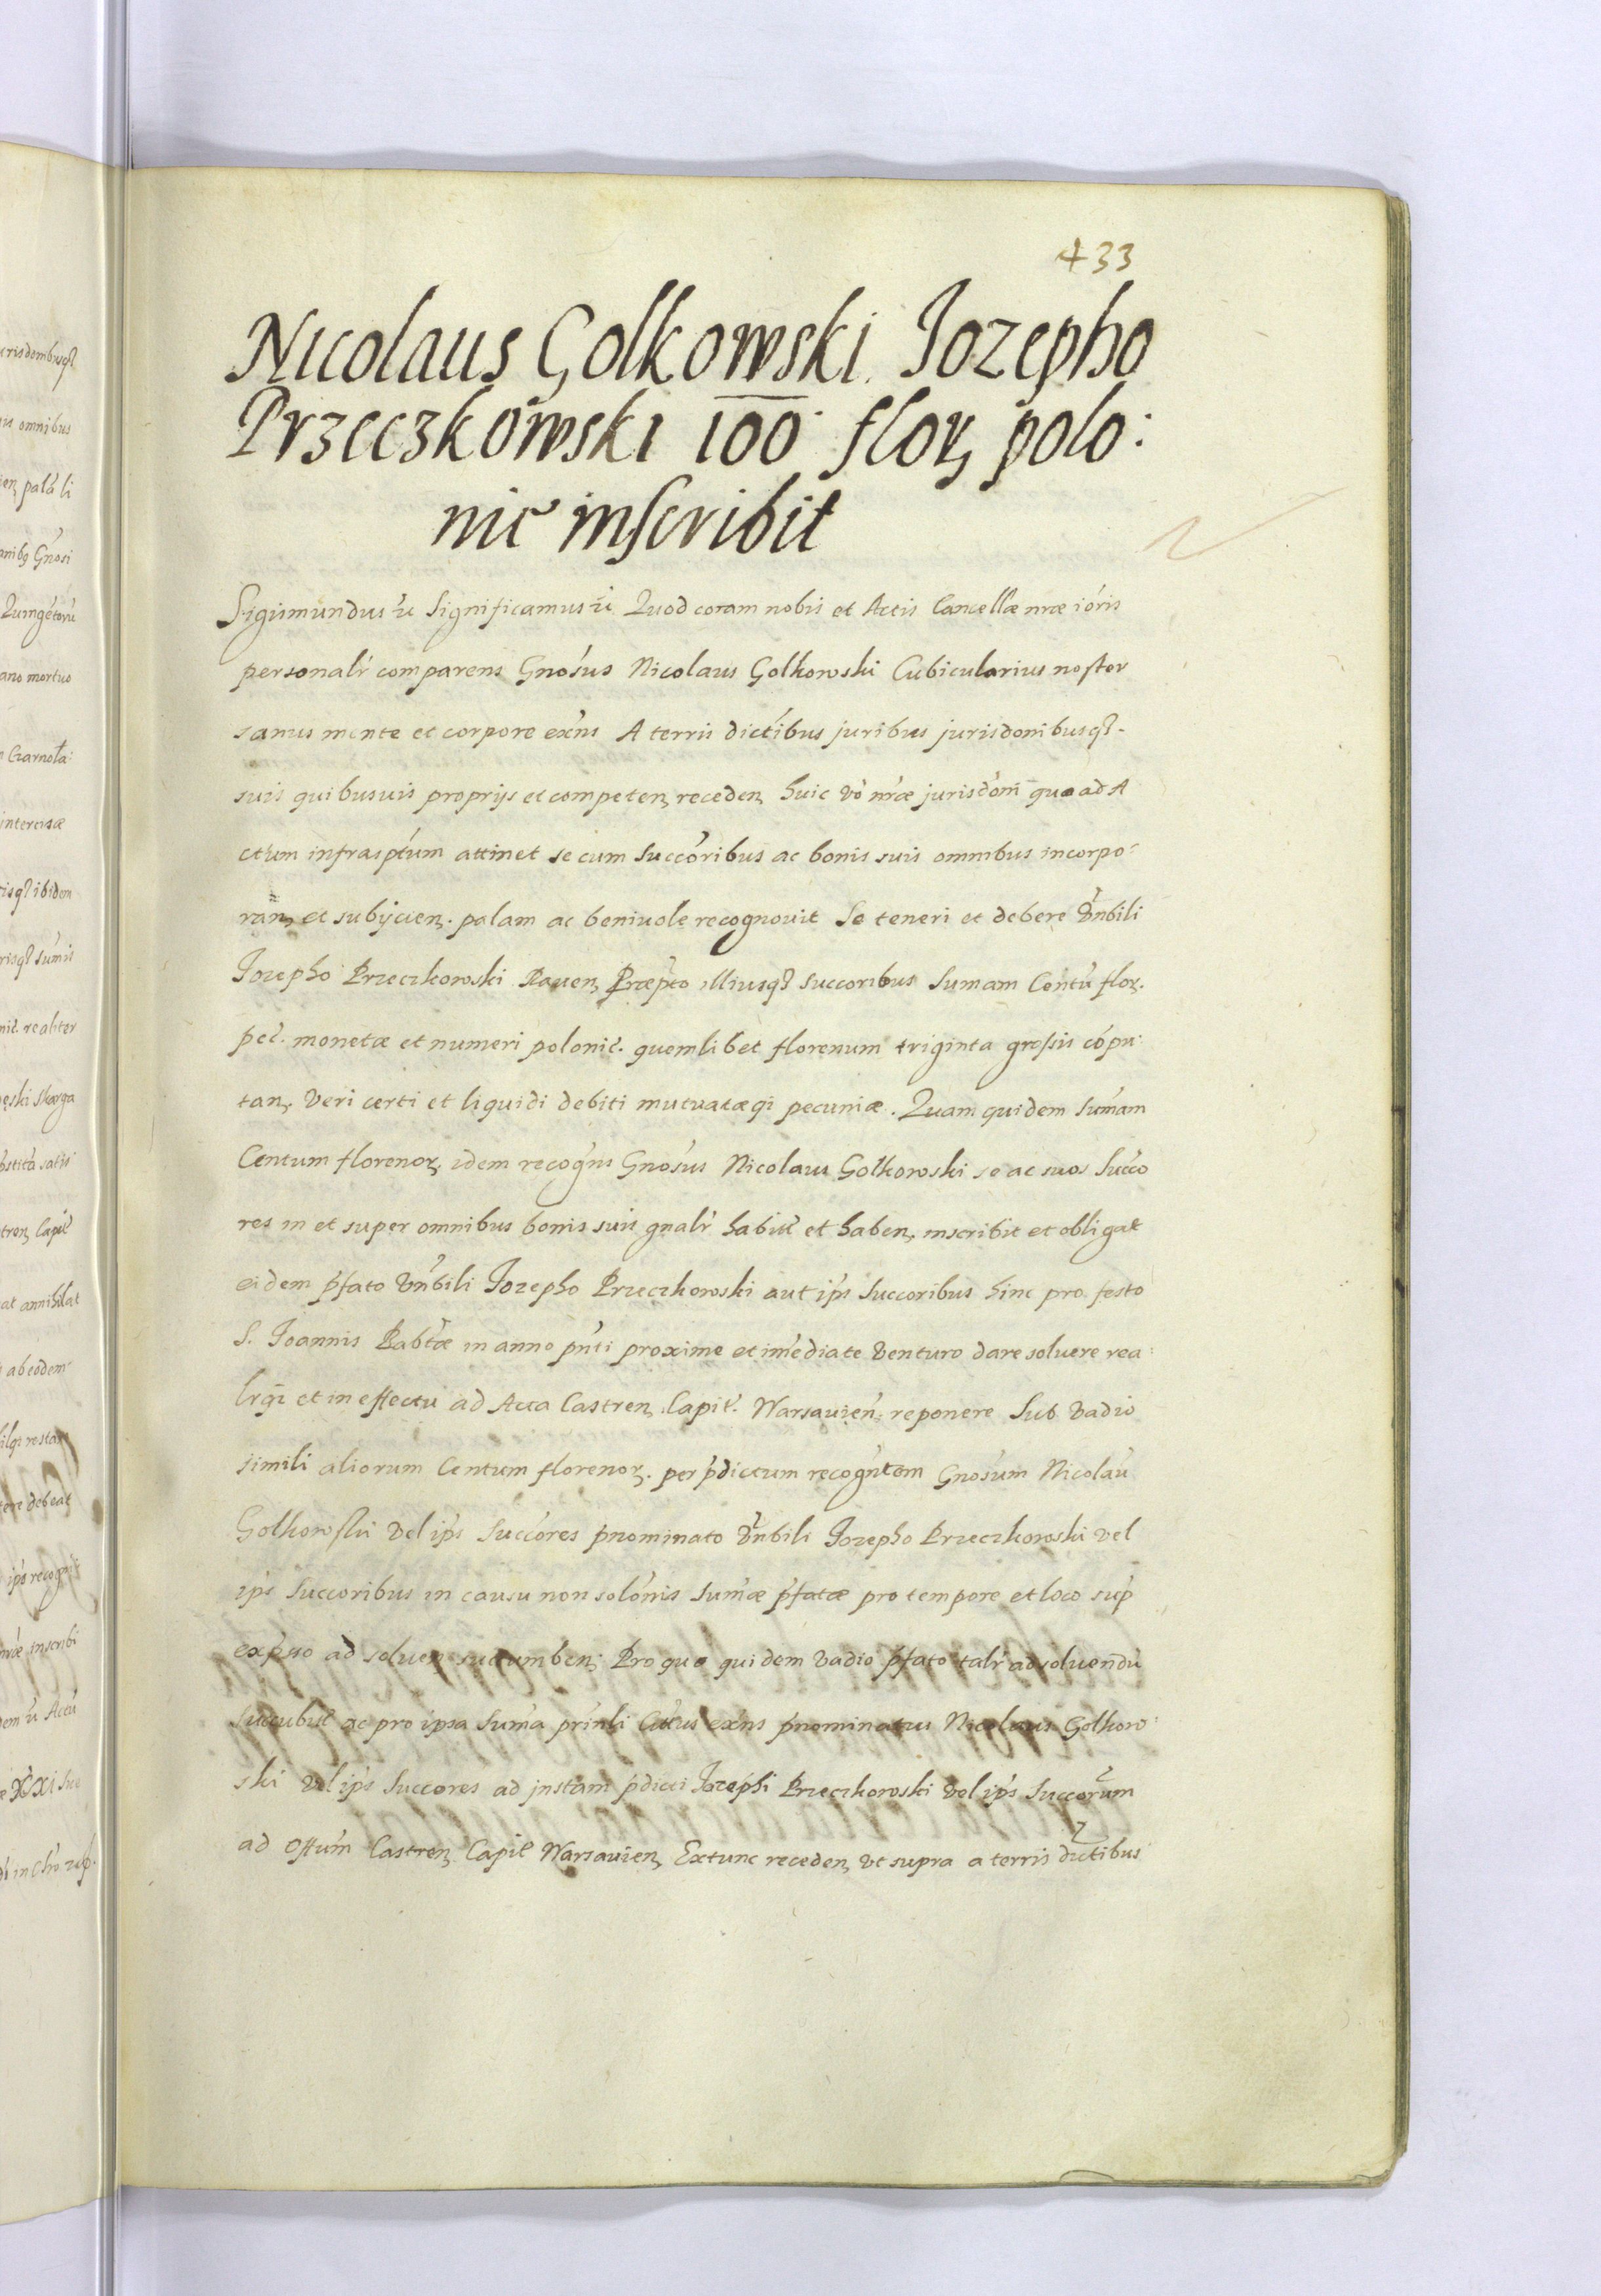 433
Nicolaus Golkowski Jozepho
Przeczkowski 100 flor, polo:
nic inscribit
Sigismundus etc Significamus etc Quod coram nobis et Actis Cancellæ nræ ioris
personalr comparens Gnosus Nicolaus Golkowski Cubicularius noster
sanus mente et corpore exns A terris dictibus juribus jurisdonibusq3.
suis quibusuis proprijs et competen, receden, huic vo nræ jurisdoni quo ad A
ctum infrasptum attinet se cum succoribus ac bonis suis omnibus incorpo:
ran, et subijcien. palam ac beniuole recognouit Se teneri et debere Vnbili
Jozepho Przeczkowski Rauen, Præpto illiusq3 succoribus Sumam Centu flor.
pec. monetæ et numeri polonic. quemlibet florenum triginta grossis copu:
tan, Veri certi et liquidi debiti mutuatæq3 pecuniæ. Quam quidem Sumam
Centum florenor, idem recogns Gnosus Nicolaus Golkowski se ac suos Succo
res in et super omnibus bonis suis gnalr habit et haben, inscribit et obligat
eidem pfato Vnbili Jozepho Przeczkowski aut ips Succoribus hinc pro festo
S. Joannis Babtæ in anno pnti proxime et imediate Venturo dare soluere rea:
lrq3 et in effectu ad Acta Castren, Capit. Warsauien, reponere Sub Vadio
simili aliorum Centum florenor. per pdictum recogntem Gnosum Nicolau
Golkowski Vel ips Succores pnominato Vnbili Jozepho Przeczkowski vel
ips Succoribus in causu non solonis Sumæ pfatæ pro tempore et loco sup
expsso ad soluen succumben, Pro quo quidem Vadio pfato talr ad soluendu
succubit ac pro ipsa Suma prinli Citus exns pnominatus Nicolaus Golkow:
ski Vel ips Succores ad jnstam pdicti Jozephi Przeczkowski Vel ips Succorum
ad Offum Castren, Capit Warsauien, Extunc receden, vt supra a terris dictibus